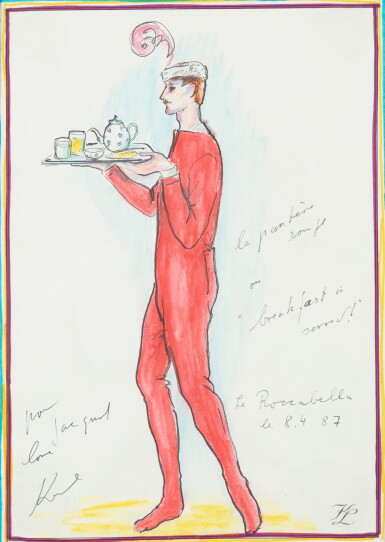 la panthère
rouge
ou
"breakfast is
served!"
La Roccabella
le 8.4.87
pour
love Jacques
Karl
KL